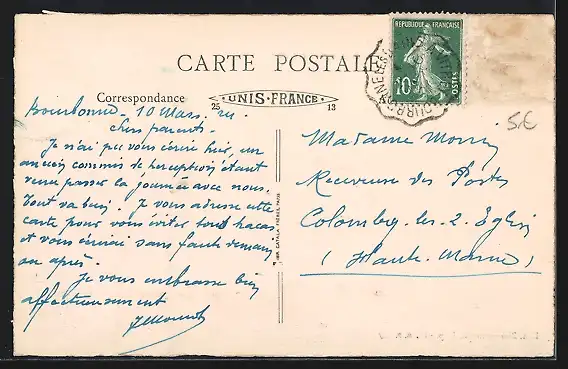 CARTE POSTALE
REPUBLIQUE FRANÇAISE
10c
POSTES
Correspondance
25 UNIS-FRANCE 13
5€
Bourbonne - 10 Mars
Chers parents.
Je n'ai pu vous écrire hier, un
ancien commis de perception étant
venu passer la journée avec nous.
Tout va bien. Je vous adresse cette
carte pour vous éviter tout tracas
et vous écrirai sans faute demain
ou après.
Je vous embrasse bien
affectueusement
Madame
Receveuse des Postes
Colombey-les-2-Eglises
(Haute-Marne)